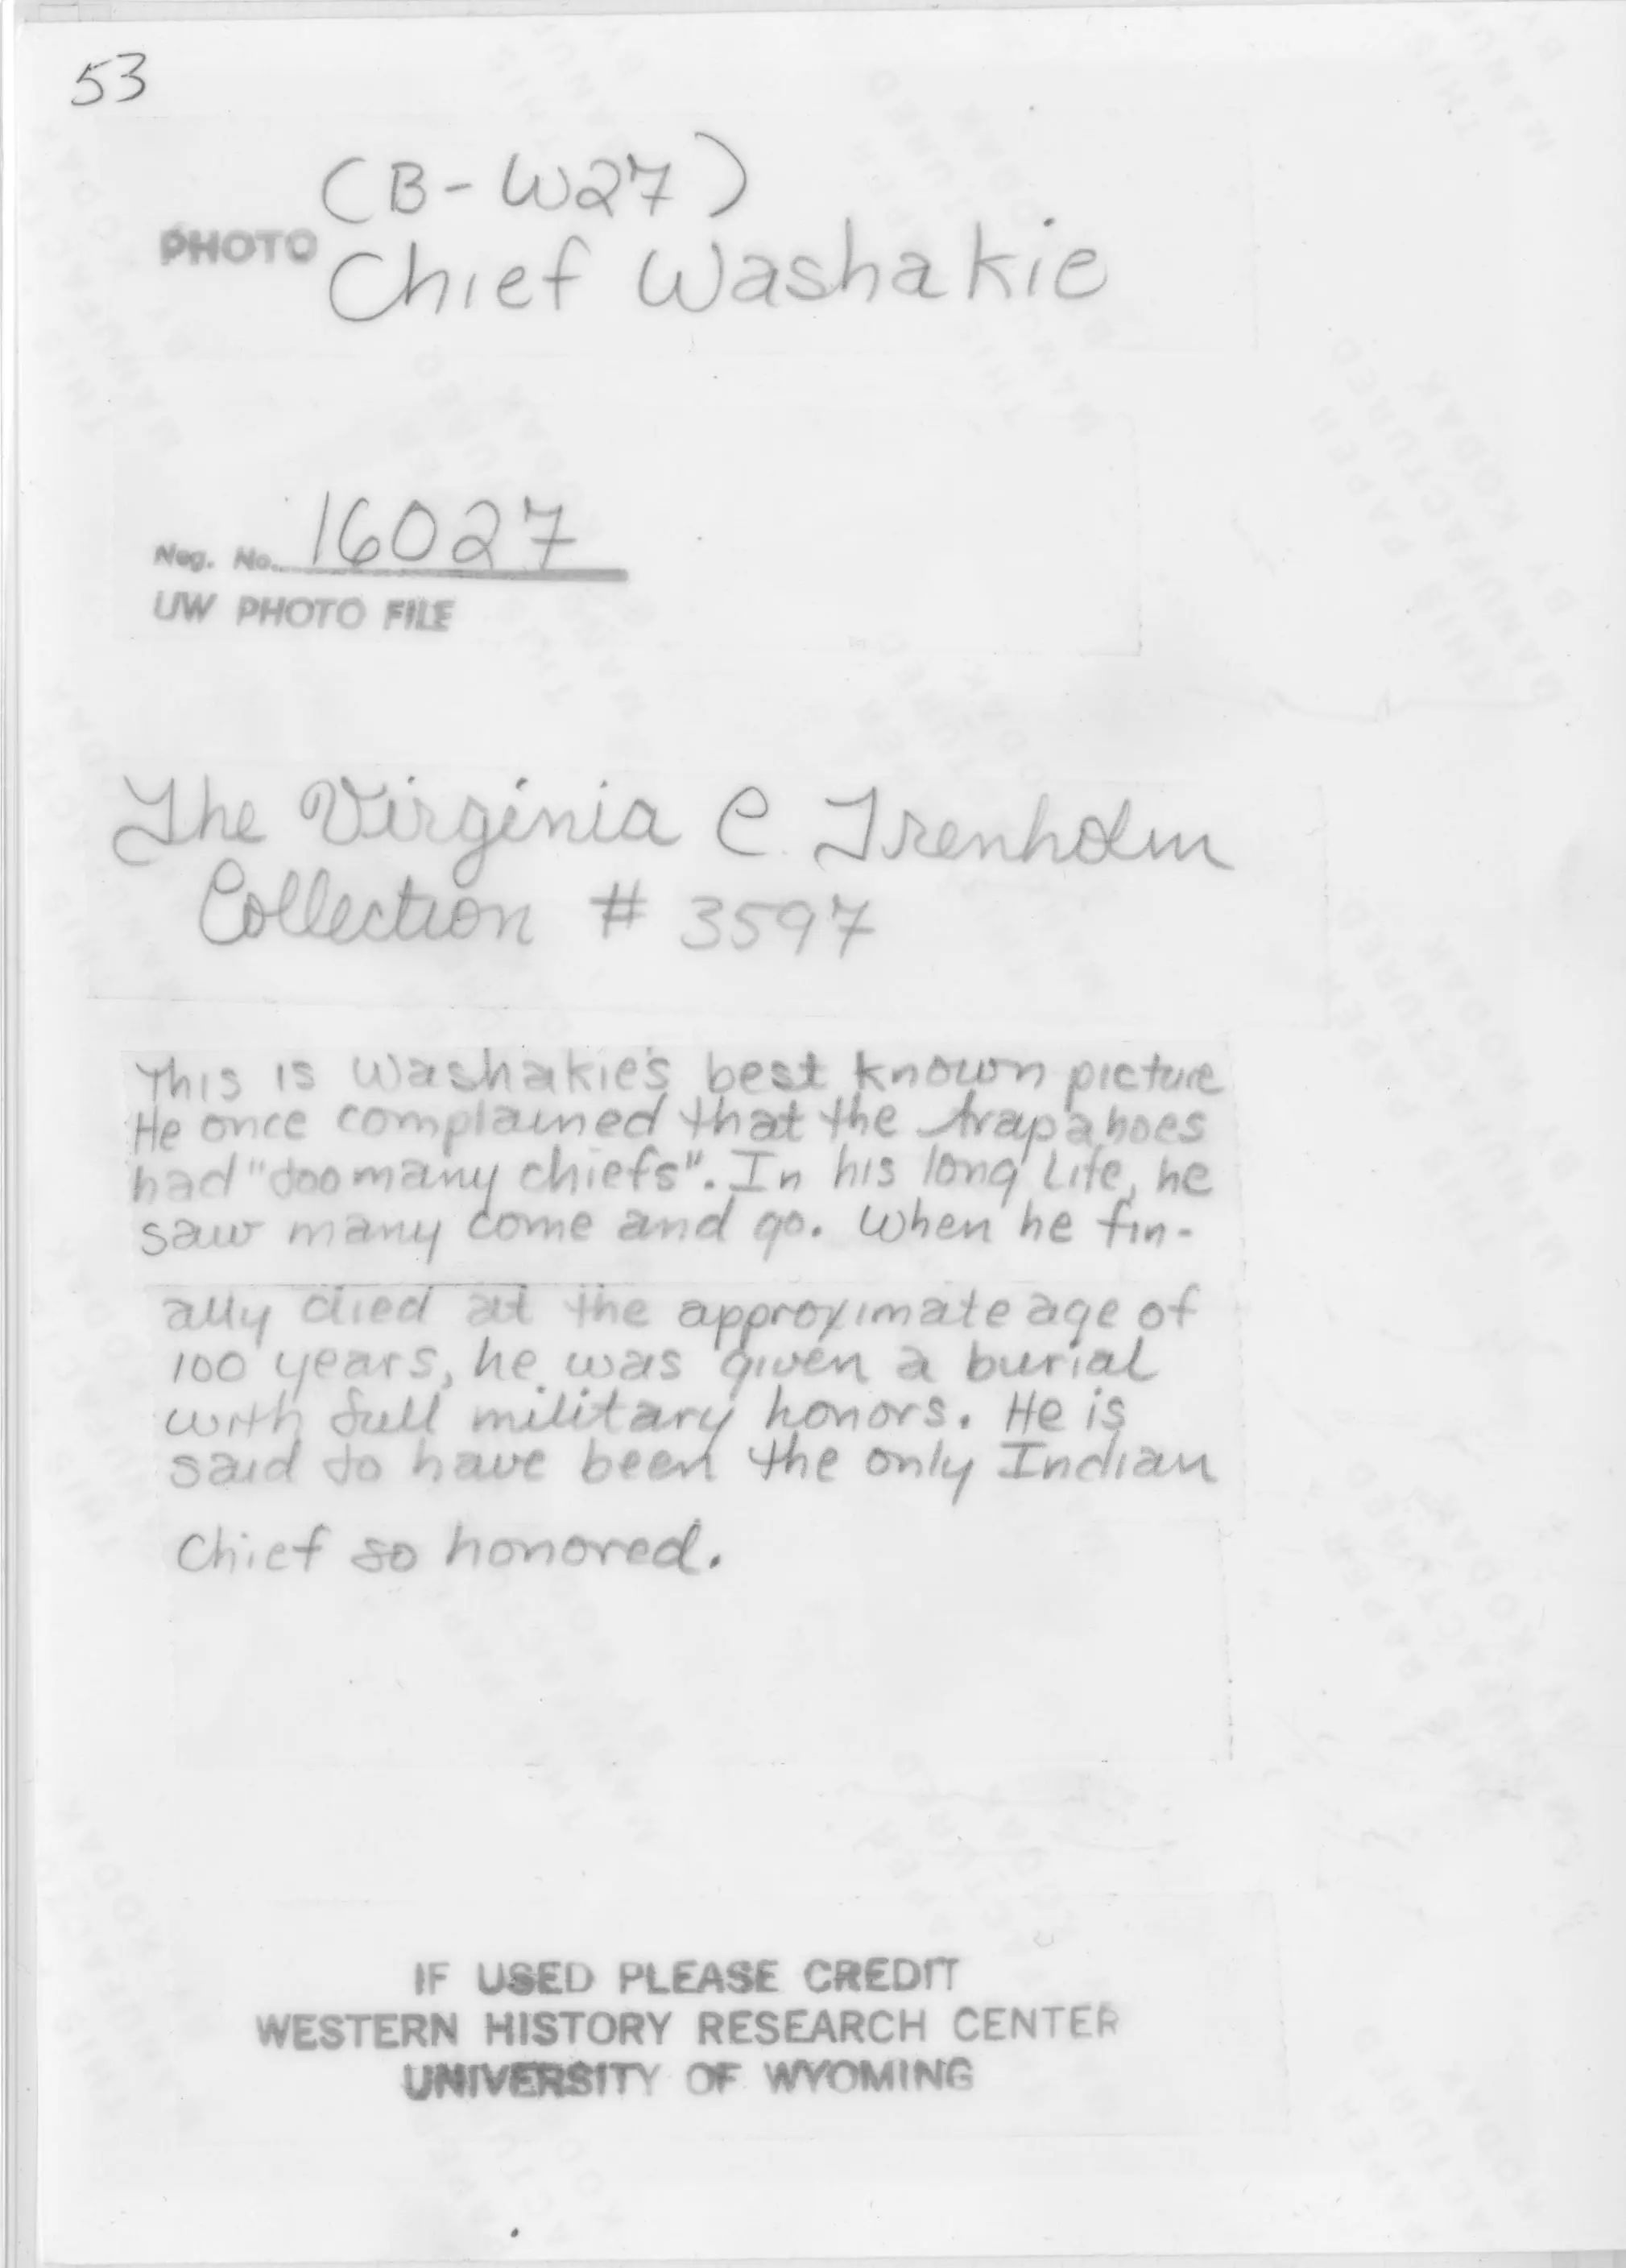 53
(B-W27)
PHOTO Chief Washakie
Neg. No. 16027
UW PHOTO FILE
The Virginia C Trenholm
Collection # 3597
This is Washakie's best known picture
He once complained that the Arapahoes
had "too many chiefs". In his long life, he
saw many come and go. When he fin-
ally died at the approximate age of
100 years, he was given a burial
with full military honors. He is
said to have been the only Indian
Chief so honored.
IF USED PLEASE CREDIT
WESTERN HISTORY RESEARCH CENTER
UNIVERSITY OF WYOMING